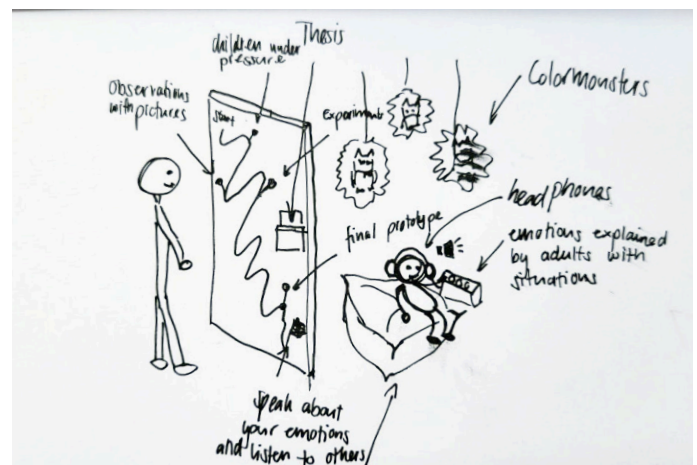 Thesis
children under
pressure
Observations
with pictures
start
experiments
Colormonsters
headphones
emotions explained
by adults with
situations
final prototype
speak about
your emotions
and listen to others